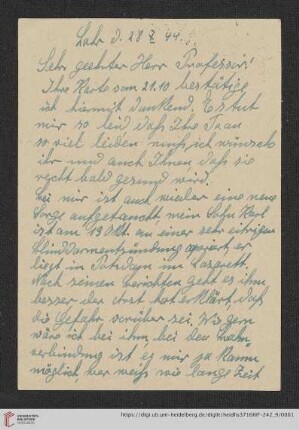 Lahr d. 28 X 44.
Sehr geehrter Herr Professor!
Ihre Karte vom 21.10 bestätige
ich hiermit dankend. Es tut
mir so leid daß Ihre Frau
so viel leiden muß, ich wünsche
ihr und auch Ihnen daß sie
recht bald gesund wird.
Bei mir ist auch wieder eine neue
Sorge aufgetaucht mein Sohn Karl
ist am 19 Okt. an einer sehr eitrigen
Blinddarmentzündung operiert, er
liegt in Potsdam im Lazarett.
Nach seinen Berichten geht es ihm
besser der Arzt hat erklärt, daß
die Gefahr vorüber sei. Wie gern
wäre ich bei ihm, bei der Bahn
verbindung ist es mir ja kaum
möglich, wer weiß wie lange Zeit
https://digi.ub.uni-heidelberg.de/diglit/heidhs3716IIIF-242_9/0001